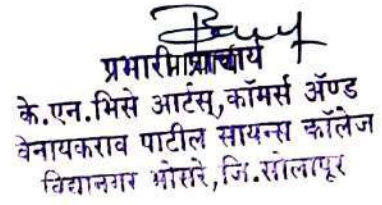 प्रभारी प्राचार्य
के.एन.भिसे आर्टस्,कॉमर्स ॲण्ड
वेनायकराव पाटील सायन्स कॉलेज
विद्यानगर भोसरे,जि.सोलापूर